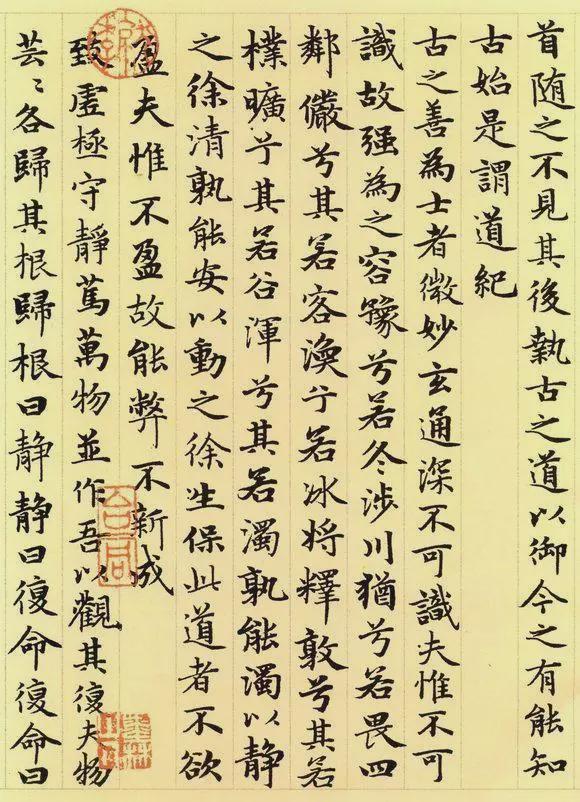 首随之不見其後執古之道以御今之有能知
古始是謂道紀
古之善為士者微妙玄通深不可識夫惟不可
識故强為之容豫兮若冬涉川猶兮若畏四
鄰儼兮其若客渙兮若冰将釋敦兮其若
樸曠兮其若谷渾兮其若濁孰能濁以靜
之徐清孰能安以動之徐生保此道者不欲
盈夫惟不盈故能弊不新成
致虛極守靜篤萬物並作吾以觀其復夫物
芸〻各歸其根歸根曰靜靜曰復命復命曰